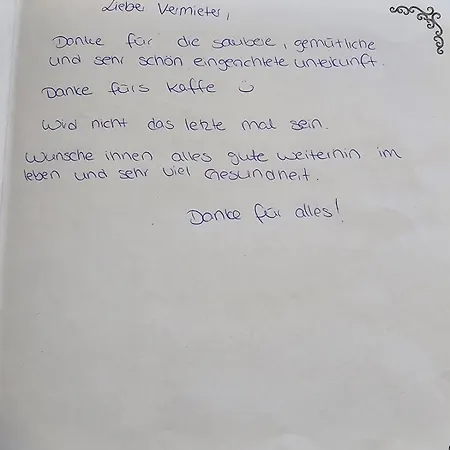 Liebe Vermieter,
Danke für die saubere, gemütliche
und sehr schön eingerichtete unterkunft.
Danke fürs Kaffe ☺
Wird nicht das letzte mal sein.
Wünsche ihnen alles gute weiterhin im
leben und sehr viel Gesundheit.
Danke für alles!